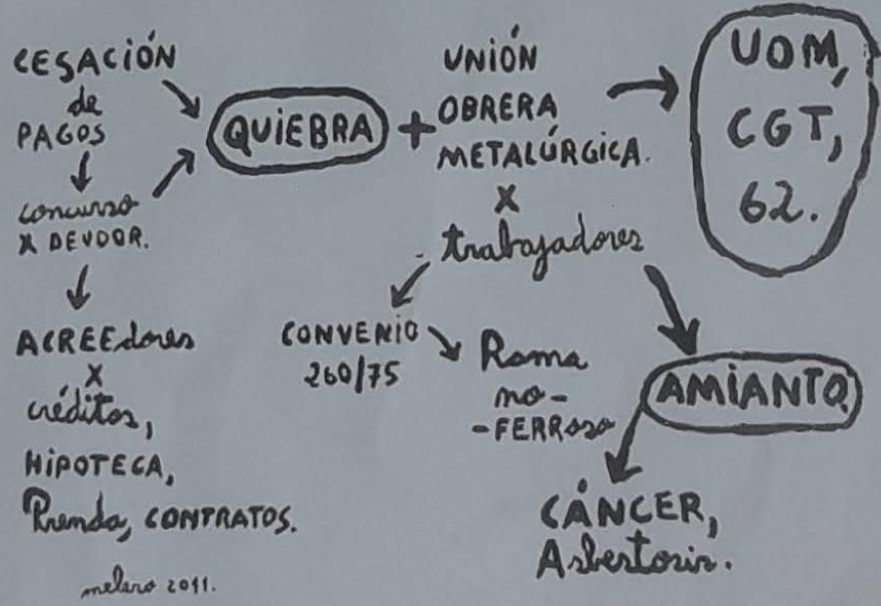 CESACIÓN
de
PAGOS
concurso
X DEUDOR.
ACREEdores
X
créditos,
HIPOTECA,
Prenda, CONTRATOS.
melero 2011.
QUIEBRA
+
UNIÓN
OBRERA
METALÚRGICA.
X
trabajadores
CONVENIO
260/75
Rama
no-
-FERRoso
UOM,
CGT,
62.
AMIANTO.
CÁNCER,
Asbestosis.